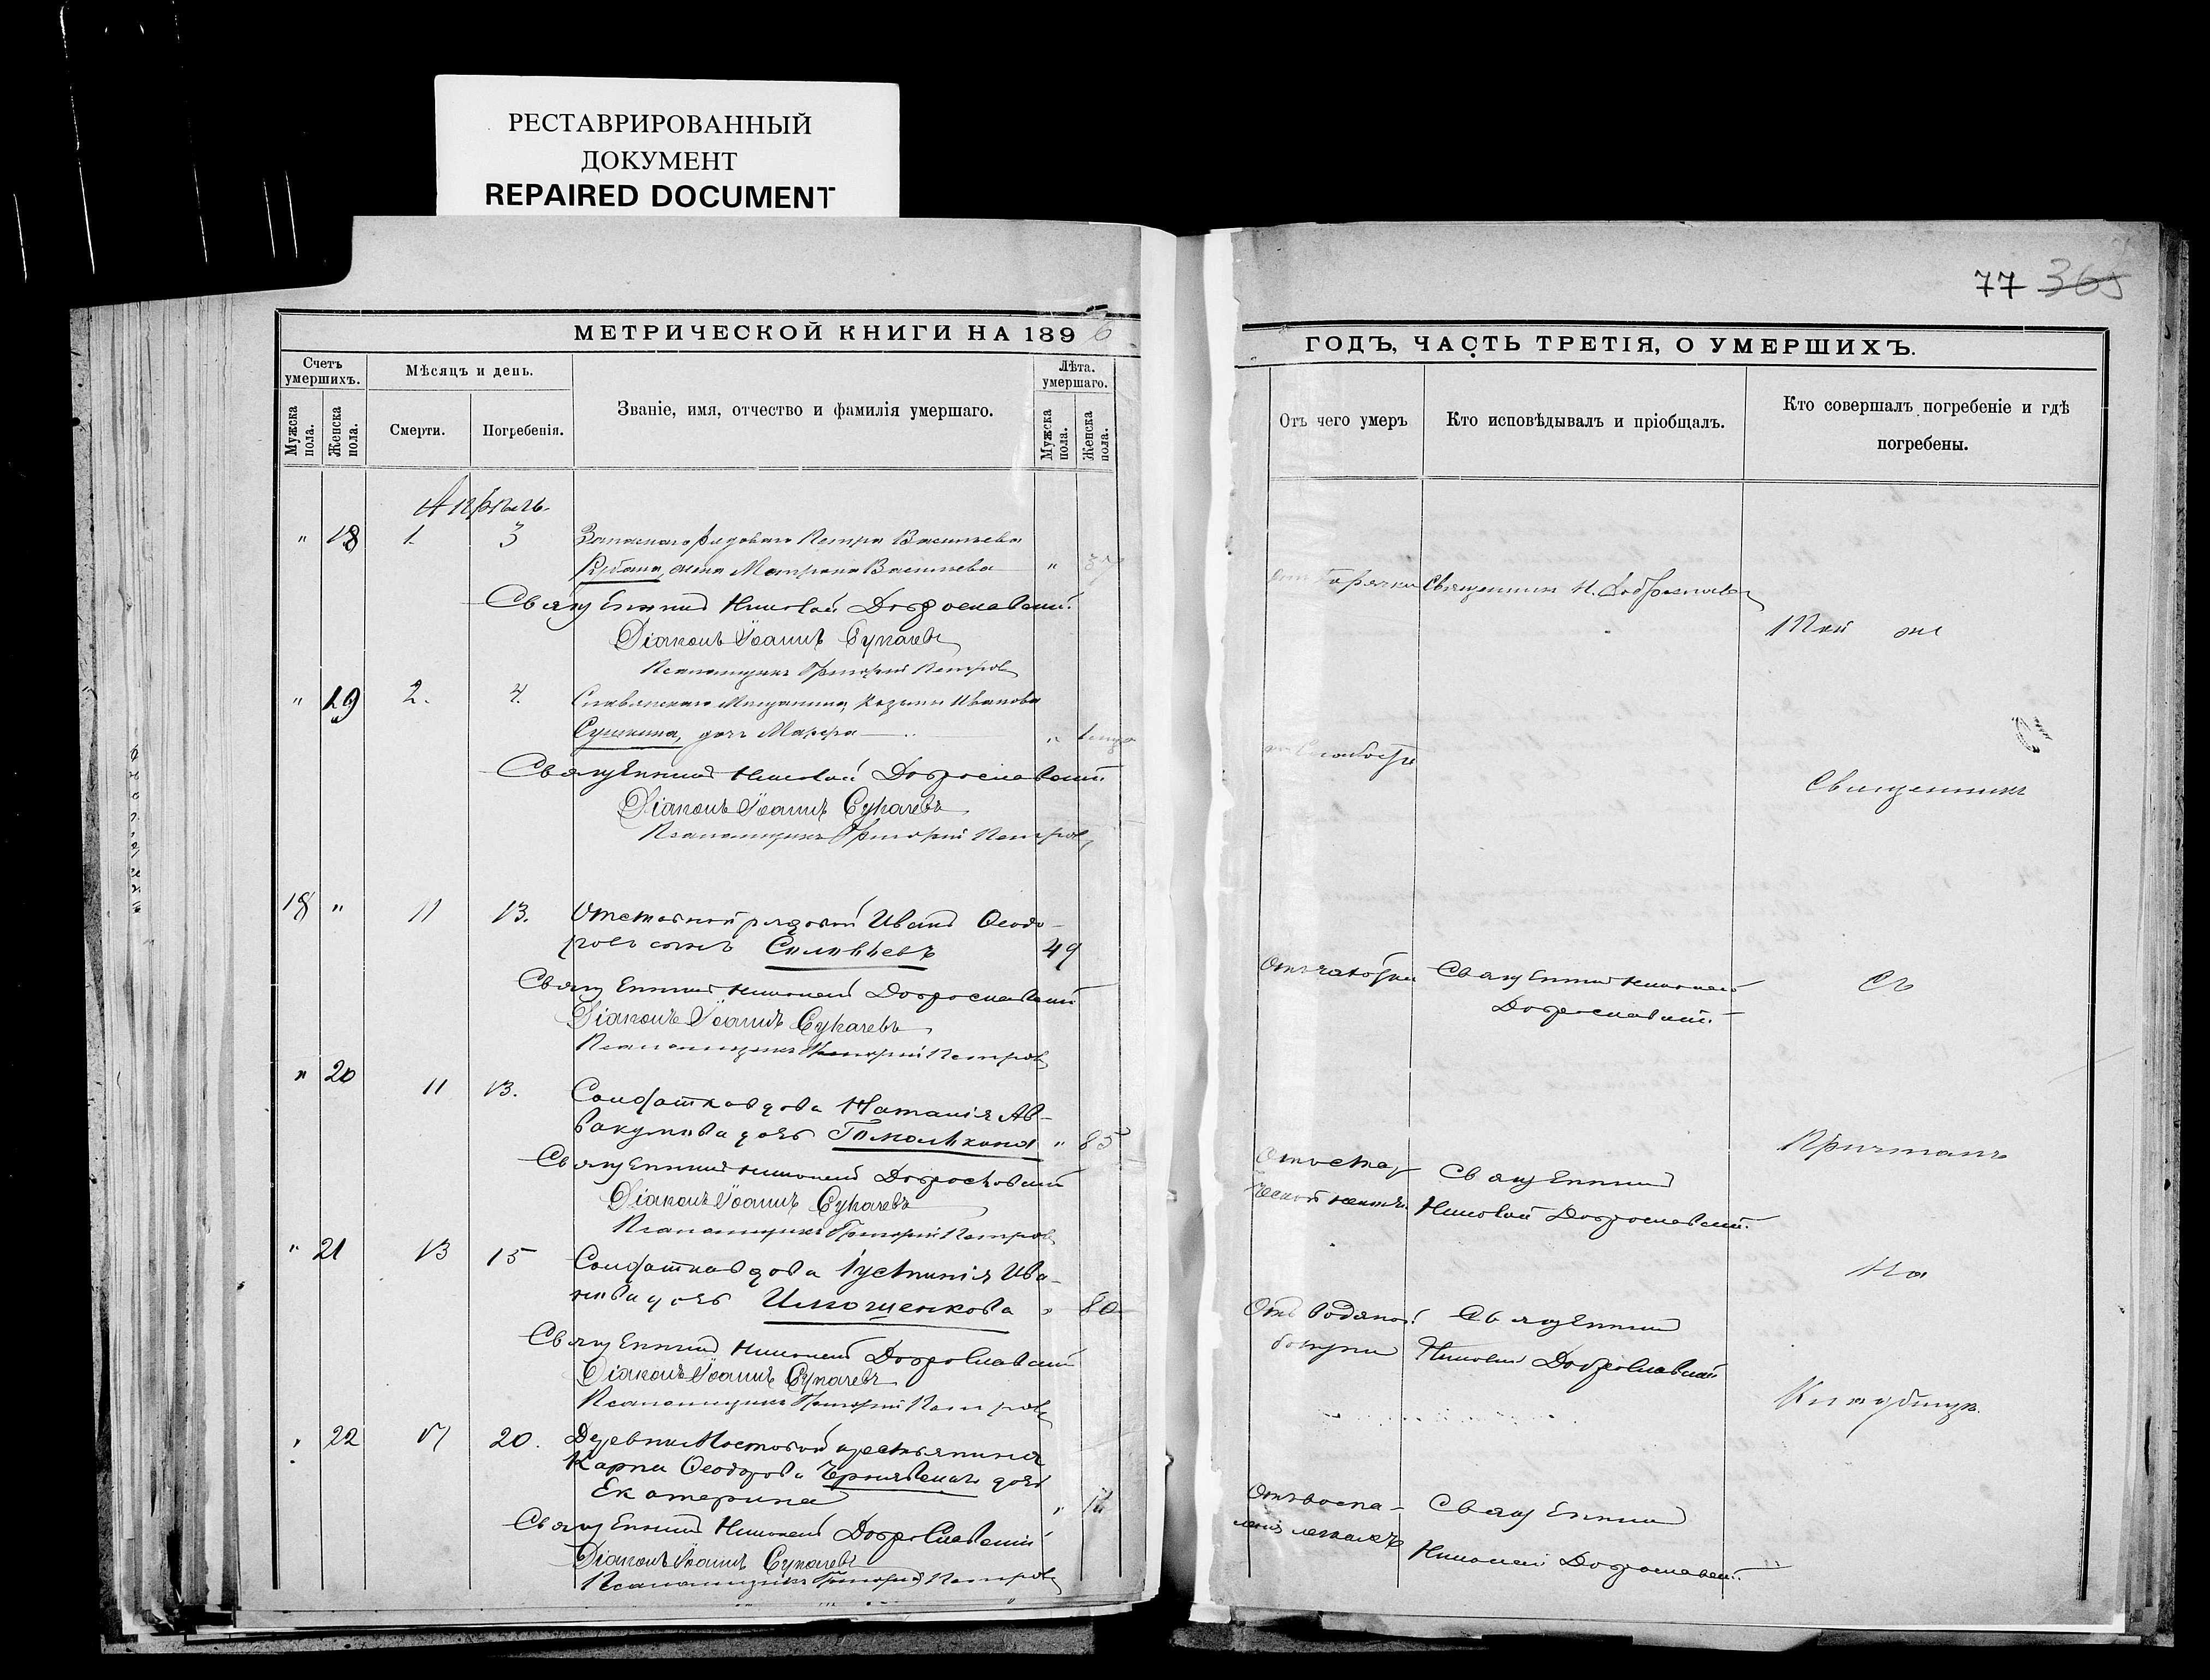 РЕСТАВРИРОВАННЫЙ
ДОКУМЕНТ
REPAIRED DOCUMENT
77 365
МЕТРИЧЕСКОЙ КНИГИ НА 1896
Счетъ умершихъ.
Мужска пола.
Женска пола.
Мѣсяцъ и день.
Смерти.
Погребенія.
Званіе, имя, отчество и фамилія умершаго.
Лѣта. умершаго.
Мужска пола.
Женска пола.
Апрѣль.
" 18 1. 3 Запаснаго рядоваго Петра Васильева
жена Матрона Васильева " 37
Священникъ Николай Доброславскій.
Діаконъ Іоаннъ Сукачевъ
Псаломщикъ Григорій Петровъ
" 19 2. 4. Славянскаго Мещанина, Козьмы Иванова
Сушкина, дочь Марѳа "
Священникъ Николай Доброславскій
Діаконъ Іоаннъ Сукачевъ
Псаломщикъ Григорій Петровъ
18 " 11 13. Отставной рядовой Иванъ Ѳеодо-
ровъ сынъ Соловьевъ 49
Священникъ Николай Доброславскій
Діаконъ Іоаннъ Сукачевъ
Псаломщикъ Григорій Петровъ
" 20 11 13. Солдатка вдова Наталія Ав-
вакумова дочь " 85
Священникъ Николай Доброславскій
Діаконъ Іоаннъ Сукачевъ
Псаломщикъ Григорій Петровъ
" 21 13 15 Солдатка вдова Іустинія Ива-
нова дочь " 80
Священникъ Николай Доброславскій
Діаконъ Іоаннъ Сукачевъ
Псаломщикъ Григорій Петровъ
" 22 20. Деревни Мостовой крестьянина
Карпа Ѳеодорова дочь
Екатерина "
Священникъ Николай Доброславскій
Діаконъ Іоаннъ Сукачевъ
Псаломщикъ Григорій Петровъ
ГОДЪ, ЧАСТЬ ТРЕТІЯ, О УМЕРШИХЪ.
Отъ чего умеръ
Кто исповѣдывалъ и пріобщалъ.
Кто совершалъ погребеніе и гдѣ
погребены.
отъ Горячки Священникъ Н. Доброславскій
Той же
отъ Слабости
Священникъ
Отъ чахотки Священникъ Николай
Доброславскій
Съ
Отъ старческой немощи
Священникъ
Николай Доброславскій.
Причтомъ
На
Отъ водяной
болѣзни
Священникъ
Николай Доброславскій
Кладбищѣ.
Отъ воспа-
ленія легкихъ
Священникъ
Николай Доброславскій.